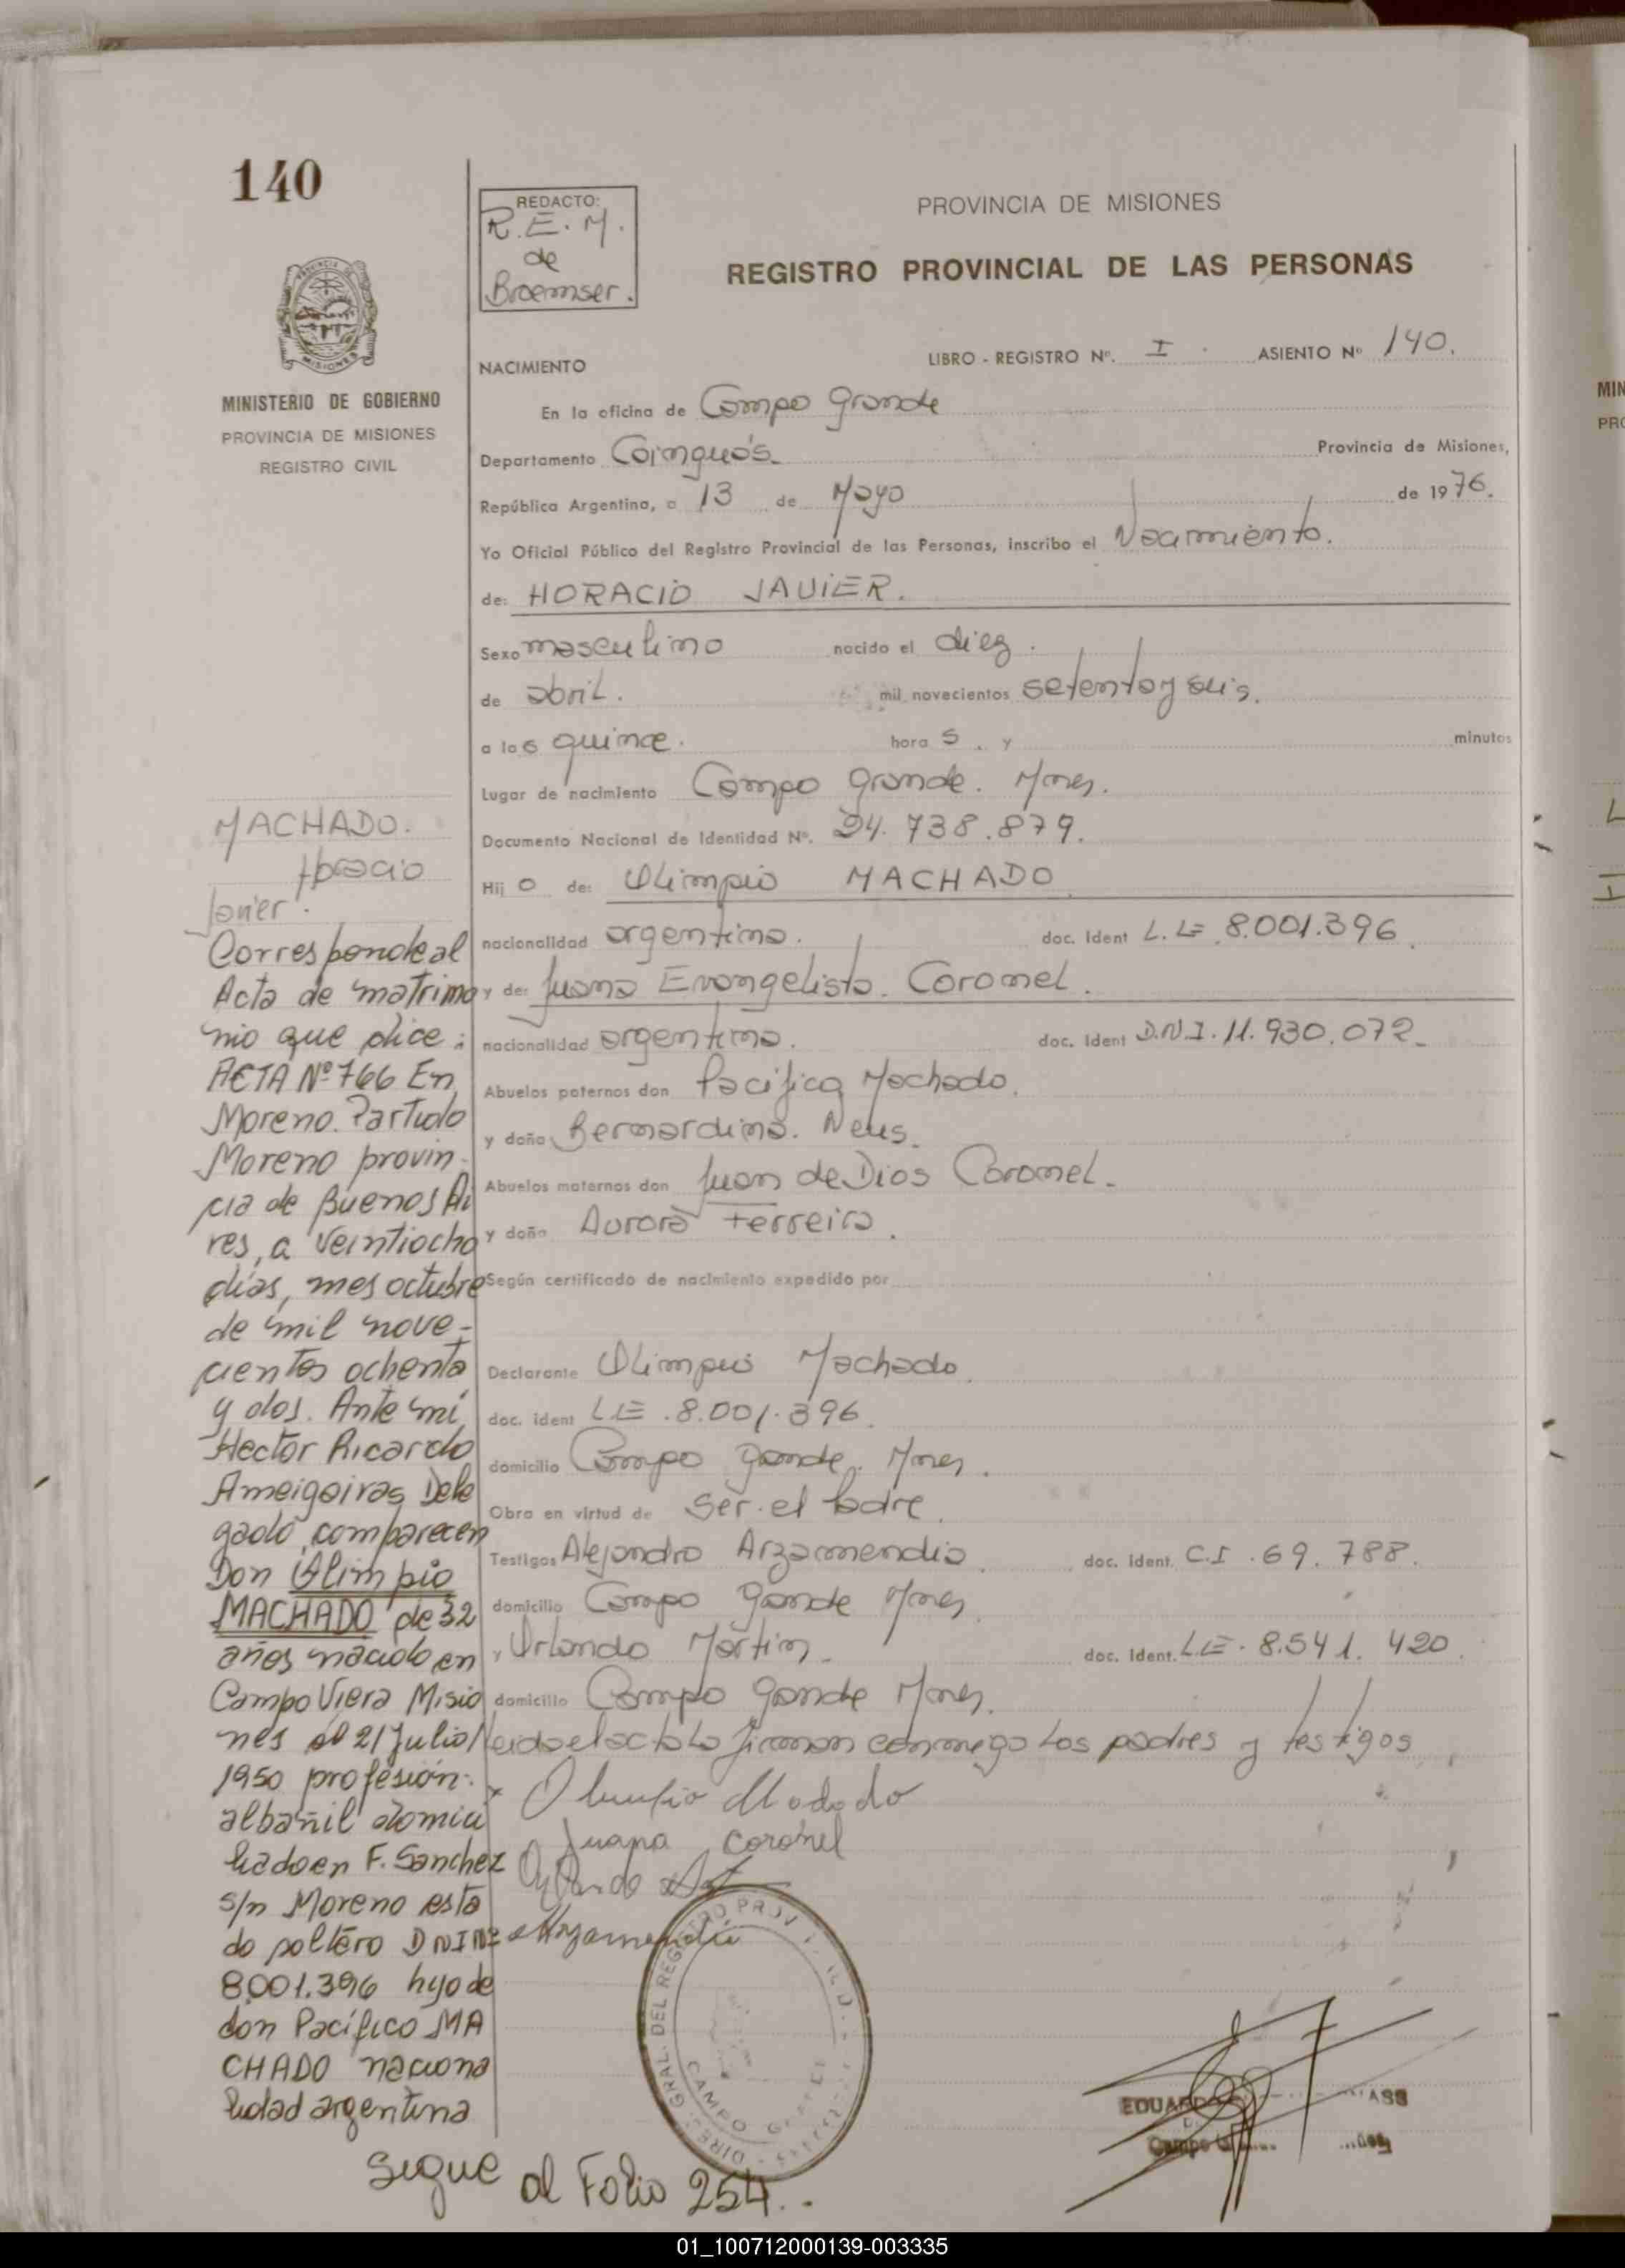 140
REDACTO:
R.E.M.
de
Broemser.
PROVINCIA DE MISIONES
REGISTRO PROVINCIAL DE LAS PERSONAS
MINISTERIO DE GOBIERNO
PROVINCIA DE MISIONES
REGISTRO CIVIL
NACIMIENTO
LIBRO - REGISTRO Nº. I. ASIENTO Nº 140.
En la oficina de Campo Grande
Departamento Cainguás. Provincia de Misiones,
República Argentina, a 13 de Mayo de 1976.
Yo Oficial Público del Registro Provincial de las Personas, inscribo el Nacimiento.
de: HORACIO JAVIER.
Sexo masculino nacido el diez.
de abril. mil novecientos setenta y seis.
a las quince. hora s. y minutos
Lugar de nacimiento Campo Grande. Mnes.
Documento Nacional de Identidad Nº. 24.738.879.
Hij o de: Olimpio MACHADO
nacionalidad argentina. doc. ident L.E 8.001.396.
y de: Juana Evangelista. Coronel.
nacionalidad argentina. doc. ident D.N.I. 11.930.072.
Abuelos paternos don Pacífico Machado.
y doña Bernardina. Neus.
Abuelos maternos don Juan de Dios Coronel.
y doña Aurora Ferreira.
Según certificado de nacimiento expedido por
Declarante Olimpio Machado.
doc. ident L.E. 8.001.396.
domicilio Campo Grande. Mnes.
Obra en virtud de ser el Padre.
Testigos Alejandro Arzamendia. doc. ident. C.I. 69.788.
domicilio Campo Grande Mnes.
y Orlando Martin. doc. ident. L.E. 8.541.420.
domicilio Campo Grande Mnes.
Leida el acta la firman conmigo los padres y testigos
Olimpio Machado
Juana Coronel
Orlando
Arzamendia
MACHADO.
Horacio
Javier.
Corresponde al
Acta de matrimo
nio que dice:
ACTA Nº 766 En
Moreno. Partido
Moreno provin-
cia de Buenos Ai
res, a veintiocho
días, mes octubre
de mil nove-
cientos ochenta
y dos. Ante mí,
Hector Ricardo
Ameigeiras Dele
gado, comparecen
Don Olimpio
MACHADO de 32
años nacido en
Campo Viera Misio
nes el 21 Julio
1950 profesión:
albañil domici
liado en F. Sanchez
s/n Moreno esta
do soltero DNI Nº
8.001.396 hijo de
don Pacífico MA
CHADO naciona
lidad argentina
Sigue al Folio 254..
DIREC. GRAL. DEL REGISTRO PROV
CAMPO GRANDE
EDUARDO
01_100712000139-003335